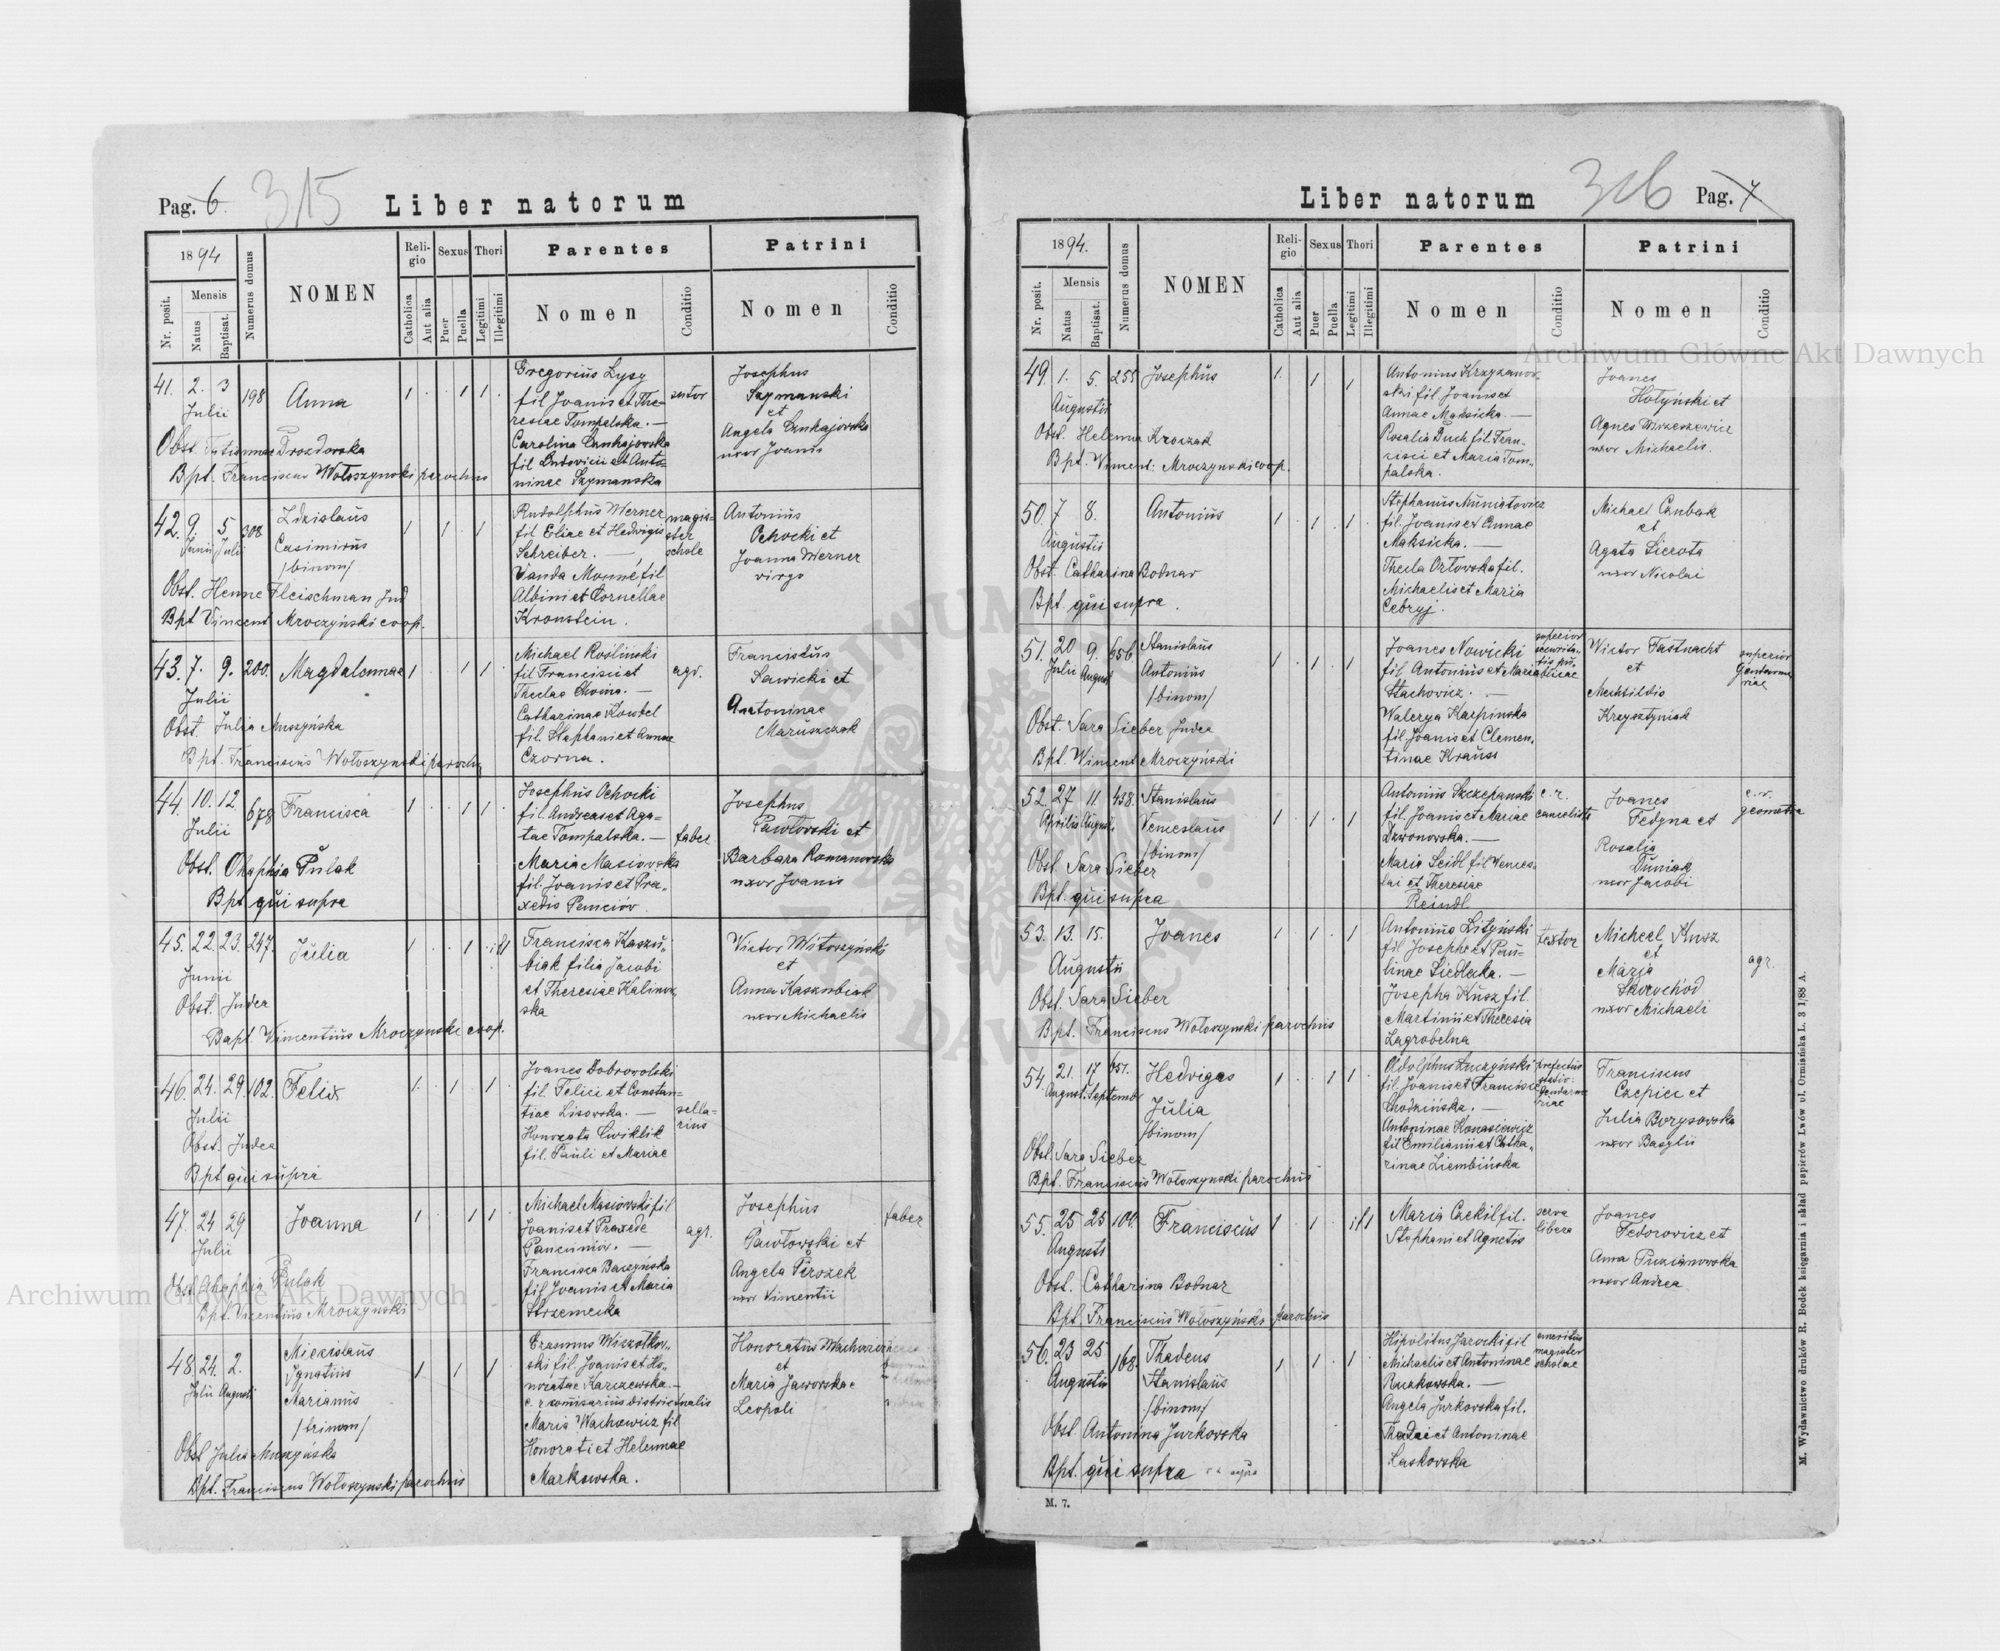 Pag. 6. 315
Liber natorum
1894
Nr. posit.
Mensis
Natus
Baptisat.
Numerus domus
NOMEN
Religio
Catholica
Aut alia
Sexus
Puer
Puella
Thori
Legitimi
Illegitimi
Parentes
Nomen
Conditio
Patrini
Nomen
Conditio
41. 2. 3 198 Anna 1 1 1
Julii
Obst. Drozdowska
Bpt. Franciscus Wołoszynski parochus
Gregorius Lysy
fil Joanis et The-
resiae Tompalska. —
Carolina
fil Ludovici et Anto-
ninae Szymanska
sutor
Josephus
Szymanski
et
Angela
uxor Joanis
42. 9 5 308 Zdzislaus 1 1 1
Junii Julii
Casimirus
/binom/
Obst. Henne Fleischman Jud
Bpt Vincent Mroczyński coop.
Rudolphus Werner
fil Eliae et Hedwigis
Schreiber. —
Vanda Monné fil
Albini et Corneliae
Kronstein.
magis-
ter
schole
Antonius
Ochocki et
Joanna Werner
virgo
43. 7. 9. 200. Magdalennae 1 1 1
Julii
Obst. Julia Muszyńska
Bpt. Franciscus Wołoszynski parochus
Michael Roślinski
fil Francisci et
Theclae —
Catharinae
fil. Stephani et Annae
Czorna.
agr.
Franciscus
Sawicki et
Antoninae
Maruszczak
44. 10. 12. 678 Francisca 1 1 1
Julii
Obst. Ohaphia Pulak
Bpt qui supra
Josephus Ochocki
fil. Andreae et Aga-
tae Tompalska. —
Maria Masiowska
fil. Joanis et Pra-
xedis
faber
Josephus
Pawłowski et
Barbara Romanowska
uxor Joanis
45. 22. 23. 247. Julia 1 1 ill
Junii
Obst. Judea
Bapt. Vincentius Mroczynski coop.
Francisca Kaszu-
biak filia Jacobi
et Theresiae Kalinow-
ska
Victor
et
Anna Kaszubiak
uxor Michaelis
46. 24. 29. 102. Felix 1 1 1
Julii
Obst. Judea
Bpt qui supra
Joanes Dobrowolski
fil. Felici et Constan-
tiae Lisowska. —
Honorata Cwiklik
fil. Pauli et Mariae
sella-
rius
47. 24 29 Joanna 1 1 1
Julii
Obst. Ohaphia Pulak
Bpt. Vicentius Mroczynski
Michael Masiowski fil
Joanis et Praxede
Francisca Baczyńska
fil Joanis et Maria
Strzemecka
agr.
Josephus
Pawłowski et
Angela Perozek
uxor Vimentii
faber
48. 24. 2. Miezislaus 1 1 1
Julii Augusti
Ignatius
Marianus
/trinom/
Obst Julia Muszyńska
Bpt. Franciscus Wołoszynski parochus
Erasmus
ski fil. Joanis et Ho-
noratae Karczewska. —
c. r comisarius districtualis
Maria Wachowicz fil
Honorati et Helennae
Markowska.
Honoratus
et
Maria Jaworska e
Leopoli
Liber natorum
306 Pag. 7
1894.
Nr. posit.
Mensis
Natus
Baptisat.
Numerus domus
NOMEN
Religio
Catholica
Aut alia
Sexus
Puer
Puella
Thori
Legitimi
Illegitimi
Parentes
Nomen
Conditio
Patrini
Nomen
Conditio
49. 1. 5. 255 Josephus 1 1 1
Augusti
Obst. Helenna Kroczak
Bpt. Vincent: Mroczynski coop.
Antonius Krzyzanow-
ski fil Joanis et
Annae Maksicka. —
Rosalia Duch fil. Fran-
cisci et Maria Tom-
palska.
Joanes
Hołyński et
Agnes
uxor Michaelis.
50. 7 8. Antonius 1 1 1
Augusti
Obst. Catharina Bodnar
Bpt. qui supra.
Stephanus
fil. Joanis et Annae
Maksicka. —
Thecla Orłowska fil.
Michaelis et Maria
Cebryj.
Michael
et
Agata Sierota
uxor Nicolai
51. 20 9. 656 Stanislaus 1 1 1
Julii August
Antonius
/binom/
Obst. Sara Sieber Judea
Bpt. Vincent Mroczyński
Joanes Nowicki
fil Antonius et Maria
Stachowicz. —
Walerya Karpinska
fil. Joanis et Clemen-
tinae Krauss
superior
securita-
tis pu-
blicae
Wictor Fastnacht
et
Mechtildis
Krzysztyniak
superior
Gendarme
riae
52. 27 11 458. Stanislaus 1 1 1
Aprilis August.
Venceslaus
/binom/
Obst. Sara Sieber
Bpt. qui supra
Antonius Szczepanski
fil. Joanis et Mariae
Dzwonowska. —
Maria Seidl fil Vences-
lai et Theresiae
Reindl
c. r.
cancelista
Joanes
Fedyna et
Rosalia
Duniak
uxor Jacobi
c. r.
geometra
53. 13. 15. Joanes 1 1 1
Augusti
Obst. Sara Sieber
Bpt. Franciscus Wołoszynski parochus
Antonius Lityński
fil Josephi et Pau-
linae Siedlecka. —
Josepha Kusz fil.
Martini et Theresia
Zagrobelna
textor
Micheel Kusz
et
Maria
Skorochód
uxor Michaeli
agr.
54. 21. 17 651. Hedvigas 1 1 1
August. Septembr
Julia
/binom/
Obst. Sara Sieber
Bpt. Franciscus Wołoszynski parochus
Adolphus
fil. Joanis et Francisca
Chodzińska. —
Antoninae Konasiewicz
fil Emiliani et Catha-
rinae Ziembińska
prefectus
static.
Gendarme
riae
Franciscus
Czepiel et
Julia Borysowska
uxor Basylii
55. 25 25 100. Franciscus 1 1 ill
Augusti
Obst. Catharina Bodnar
Bpt. Franciscus Wołoszyński parochus
Maria Czekil fil.
Stephani et Agnetis
serva
libera
Joanes
Fedorowicz et
Anna
uxor Andrea
56. 23 25 168. Thadeus 1 1 1
Augusti
Stanislaus
/binom/
Obst Antonina Jurkowska
Bpt. qui supra
Hipolitus Jarocki fil
Michaelis et Antoninae
Ruzkowska. —
Angela Jurkowska fil.
Thadei et Antoninae
Laskowska
emeritus
magister
scholae
M. 7.
M. Wydawnictwo druków R. Bodek księgarnia i skład papierów Lwów ul. Ormiańska L. 3 1/88 A.
Archiwum Główne Akt Dawnych
Archiwum Główne Akt Dawnych